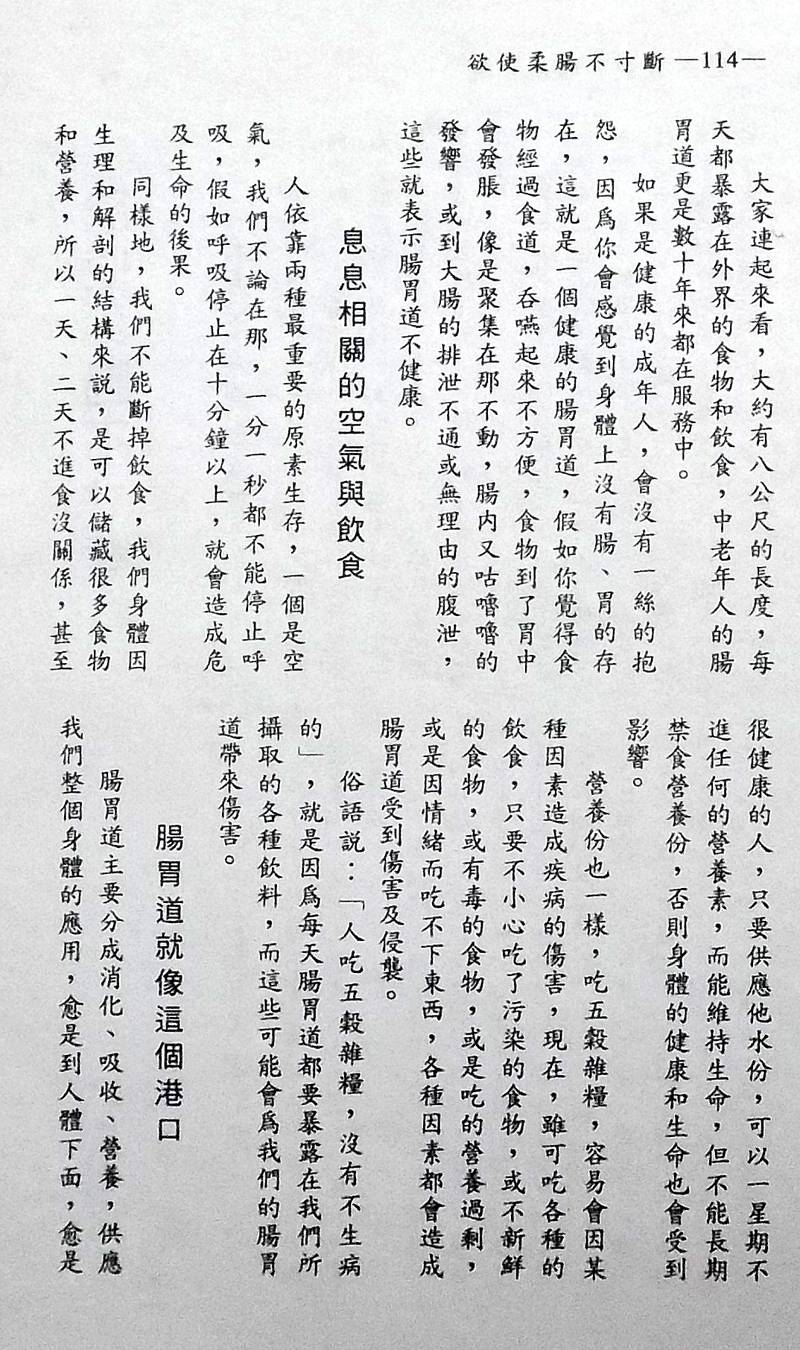 欲使柔腸不寸斷 —114—
大家連起來看，大約有八公尺的長度，每
天都暴露在外界的食物和飲食，中老年人的腸
胃道更是數十年來都在服務中。
如果是健康的成年人，會沒有一絲的抱
怨，因爲你會感覺到身體上沒有腸、胃的存
在，這就是一個健康的腸胃道，假如你覺得食
物經過食道，吞嚥起來不方便，食物到了胃中
會發脹，像是聚集在那不動，腸內又咕嚕嚕的
發響，或到大腸的排泄不通或無理由的腹泄，
這些就表示腸胃道不健康。
息息相關的空氣與飲食
人依靠兩種最重要的原素生存，一個是空
氣，我們不論在那，一分一秒都不能停止呼
吸，假如呼吸停止在十分鐘以上，就會造成危
及生命的後果。
同樣地，我們不能斷掉飲食，我們身體因
生理和解剖的結構來説，是可以儲藏很多食物
和營養，所以一天、二天不進食沒關係，甚至
很健康的人，只要供應他水份，可以一星期不
進任何的營養素，而能維持生命，但不能長期
禁食營養份，否則身體的健康和生命也會受到
影響。
營養份也一樣，吃五穀雜糧，容易會因某
種因素造成疾病的傷害，現在，雖可吃各種的
飲食，只要不小心吃了污染的食物，或不新鮮
的食物，或有毒的食物，或是吃的營養過剩，
或是因情緒而吃不下東西，各種因素都會造成
腸胃道受到傷害及侵襲。
俗語説：「人吃五穀雜糧，沒有不生病
的」，就是因爲每天腸胃道都要暴露在我們所
攝取的各種飲料，而這些可能會爲我們的腸胃
道帶來傷害。
腸胃道就像這個港口
腸胃道主要分成消化、吸收、營養，供應
我們整個身體的應用，愈是到人體下面，愈是